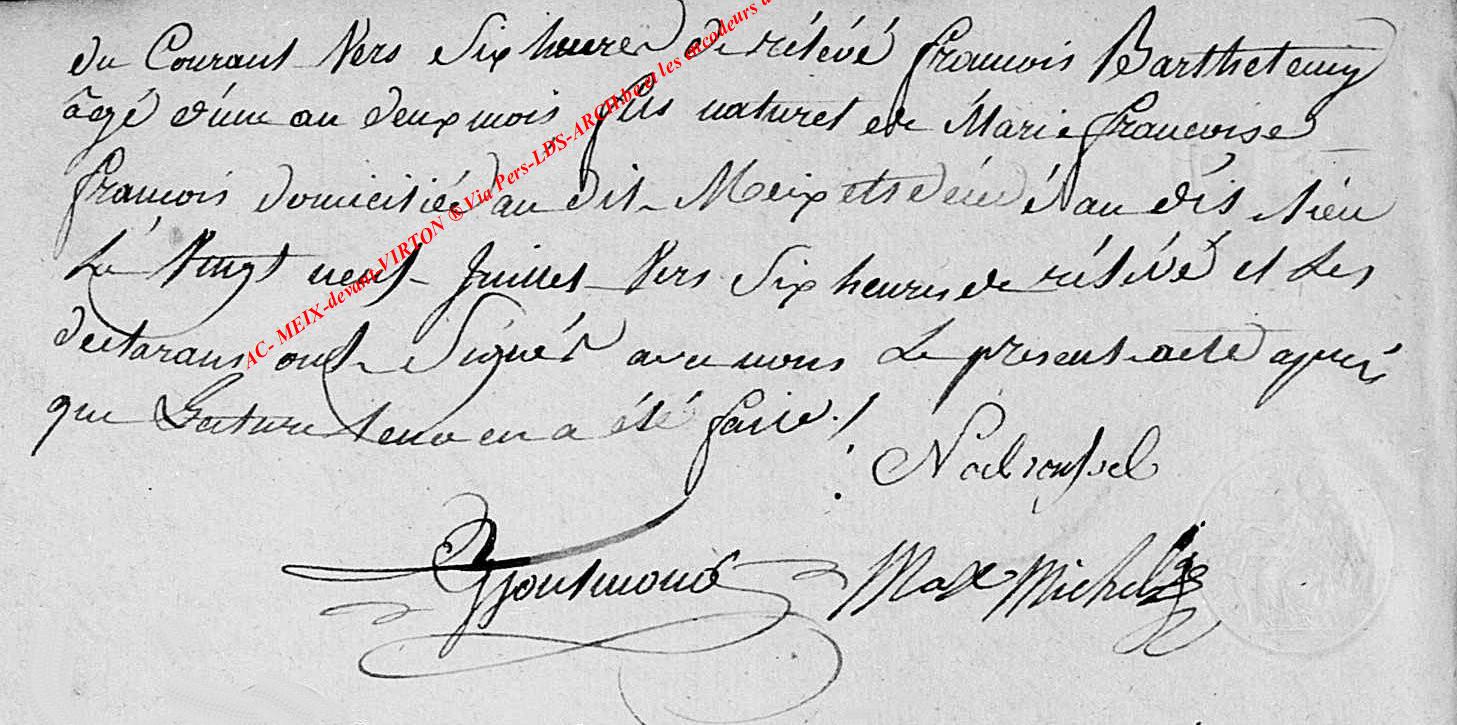 du Courant Vers Six heures de rélévé françois Barthelemy
âgé d'un an deux mois fils naturel de Marie françoise
françois domicilié au dit Meix et décédé au dit lieu
Le Vingt neuf Juillet Vers Six heures de rélévé et Les
declarans ont Signés avec nous Le present acte après
que Lecture en a été faite ./.
Noel roussel
Max Michel
AC- MEIX-devant-VIRTON ® Via Pers-LDS-ARCH.be et les encodeurs